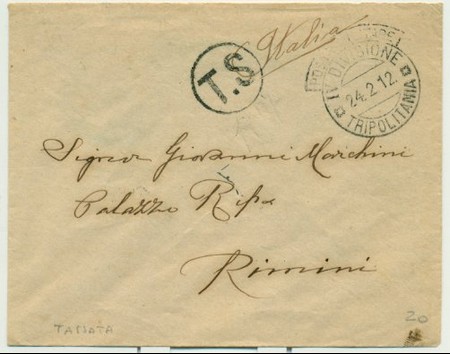 Italia
T.S
POSTA MILITARE
IV DIVISIONE
24.2.12.
TRIPOLITANIA
Signor Giovanni Marchini
Palazzo Ripa
Rimini
TASSATA
20